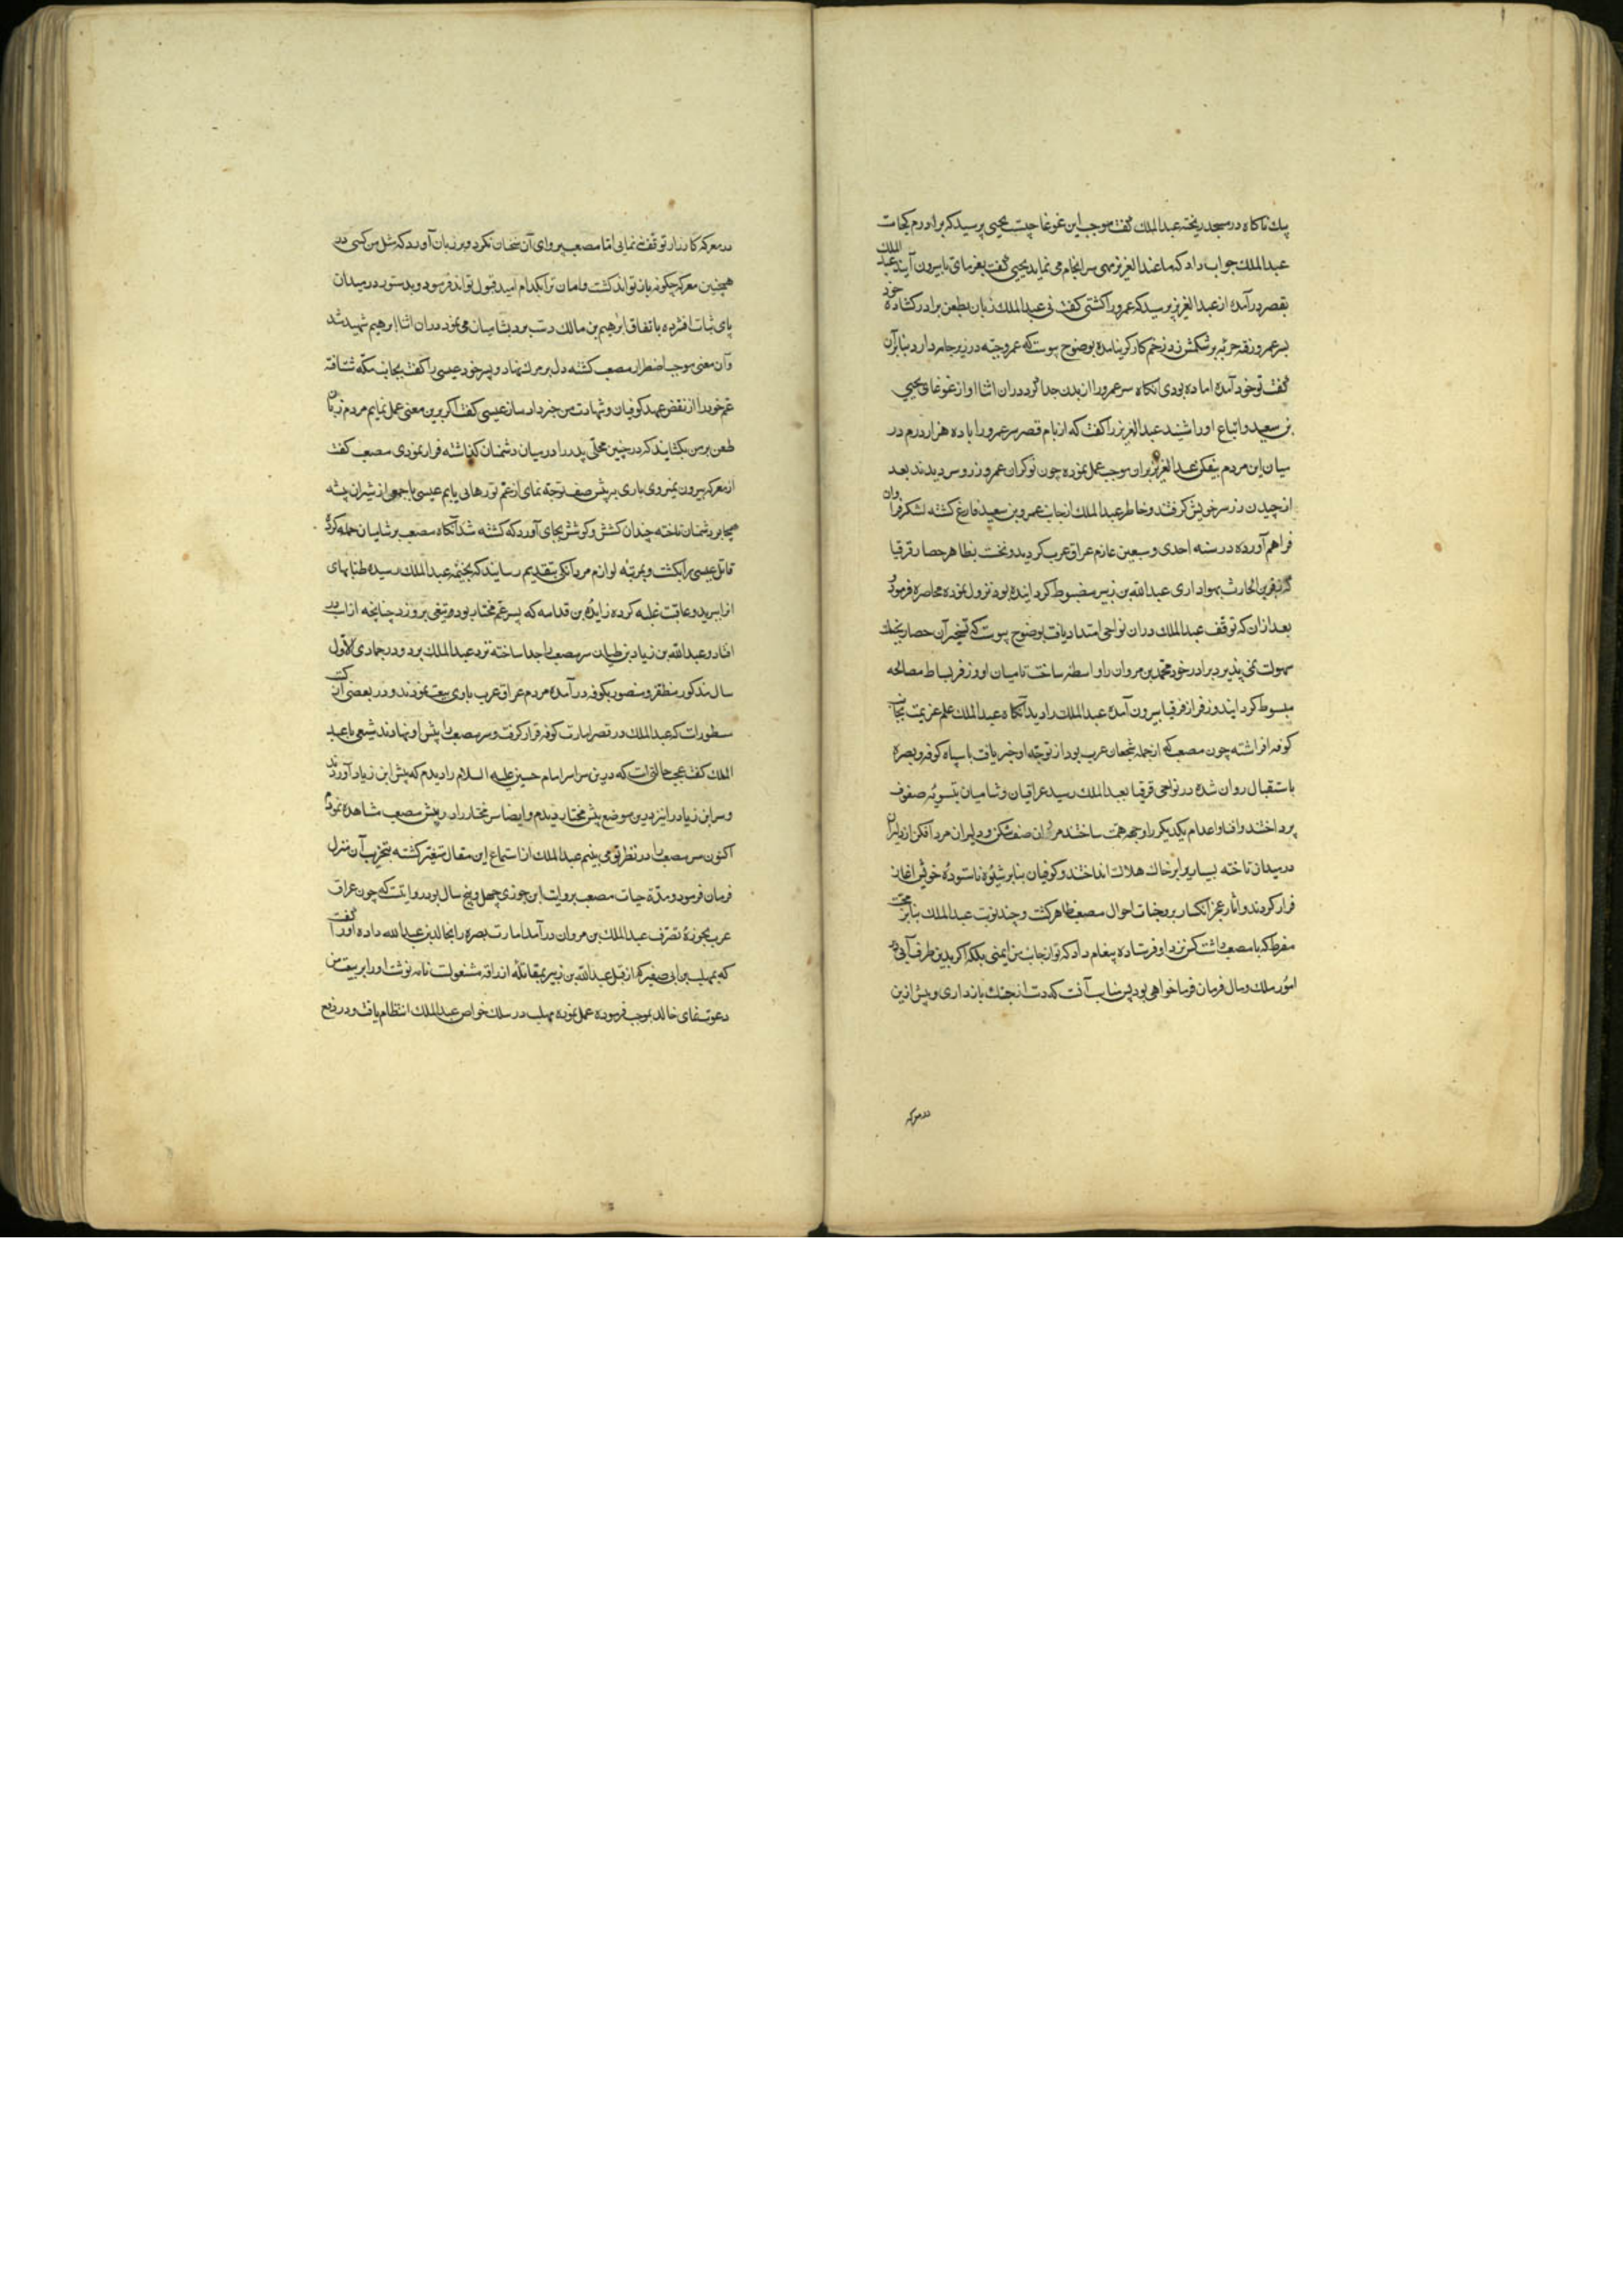 بیک ناکاه در مسجد ریخته عبدالملک کفت موجب این غوغا چیست یحیی پرسید که برادرم کجاست
عبدالملک جواب داد که با عبدالعزیز مهمی سرانجام می نماید یحیی کفت بفرمای تا بیرون آیند عبدالملک
بقصر درآمده از عبدالعزیز پرسید که عمرو را کشتی کفت نی عبدالملک زبان بطعن برادر کشاده خود
بر عمرو زد حربه بر شکمش زد زخم کارکر نیامده بوضوح پیوست که عمرو جبه در زیر جامه دارد بنا برآن
کفت تو خود آمده اماده بودی انکاه سر عمرو را از بدن جدا کرد در ان اثنا اواز غوغای یحیی
بن سعید و اتباع او را شنید عبدالعزیز را کفت که از بام قصر سر عمرو را با ده هزار درم در
میان این مردم بیفکن عبدالعزیز بران موجب عمل نموده چون نوکران عمرو زر و سر دیدند بعد
از چیدن زر سر خویش کرفتند و خاطر عبدالملک از جانب عمرو بن سعید فارغ کشته لشکر فراوان
فراهم آورده در سنه احدی و سبعین عازم عراق عرب کردید و نخست بظاهر حصار قرقیا
که زفر بن الحارث بهواداری عبدالله بن زبیر مضبوط کردانیده بود نزول نموده محاصره فرمود و
بعد ازان که توقف عبدالملک دران نواحی امتداد یافت بوضوح پیوست که تسخیر آن حصار بجنک
سهولت نمی پذیرد برادر خود محمد بن مروان را واسطه ساخت تا میان او و زفر بساط مصالحه
مبسوط کردانید و زفر از قرقیا بیرون آمده عبدالملک را دید آنکاه عبدالملک علم عزیمت بجانب
کوفه افراشته چون مصعب که از جمله شجعان عرب بود از توجه او خبر یافت با سپاه کوفه و بصره
باستقبال روان شده در نواحی قرقیا بعبدالملک رسید عراقیان و شامیان بتسویه صفوف
پرداختند و افنا و اعدام یکدیکر را وجهه همت ساختند مردان صف شکن و دلیران مرد افکن از دلیران
در میدان تاخته بسیاری را بر خاک هلاک انداختند و کوفیان بنا بر شیوه ناستوده خویش اغاز
فرار کردند و اثار عجز و انکسار بر وجنات احوال مصعب ظاهر کشت و چند نوبت عبدالملک بنا بر محبت
مفرط که با مصعب داشت کس نزد او فرستاده پیغام داد که تو از جانب من ایمنی بلکه اکر بدین طرف آیی در
امور ملک و مال فرمان فرما خواهی بود پس مناسب آنست که دست از جنک بازداری و پیش ازین
در معرکه
در معرکه کارزار توقف ننمایی اما مصعب پروای آن سخنان نکرد و بر زبان آورد که مثل من کسی در
همچنین معرکه چکونه باز تواند کشت و امان ترا بکدام امید قبول تواند فرمود و بدستور در میدان
پای ثبات افشرده باتفاق ابرهیم بن مالک دست برد بشامیان می نمود دران اثنا ابرهیم شهید شد
وآن معنی موجب اضطرار مصعب کشته دل بر مرک نهاد و پسر خود عیسی را کفت بجانب مکه شتافته
عم خود را از نقض عهد کوفیان و شهادت من خبردار ساز عیسی کفت اکر برین معنی عمل نمایم مردم زبان
طعن بر من بکشایند که در چنین محلی پدر را در میان دشمنان کذاشته فرار نمودی مصعب کفت
از معرکه بیرون نمیروی باری بر پیش صف توجه نمای از غم تو رهایی یابم عیسی با جمعی از شیران بیشه
هیجا بر دشمنان تاخته چندان کشش و کوشش بجای آورد که کشته شد آنکاه مصعب بر شامیان حمله کرد و
قاتل عیسی را بکشت و بمرتبه لوازم مردانکی بتقدیم رسانید که بخیمه عبدالملک رسیده طنابهای
انرا ببرید و عاقبت غلبه کرده زایده بن قدامه که پسر عم مختار بود و تیغی برو زد چنانچه از اسب در
افتاد و عبدالله بن زیاد بن ظبیان سر مصعب را جدا ساخته نزد عبدالملک برد و در جمادی الاول
سال مذکور مظفر و منصور بکوفه درآمده مردم عراق عرب با وی بیعت نمودند و در بعضی از کتب
مسطورست که عبدالملک در قصر امارت کوفه قرار کرفت و سر مصعب را پیش او نهادند شیعی با عبد
الملک کفت عجب حالتی است که درین سرا سر امام حسین علیه السلام را دیدم که پیش ابن زیاد آوردند
و سر ابن زیاد را نیز بدین موضع پیش مختار دیدم و ایضا سر مختار را در پیش مصعب مشاهده نمودم
اکنون سر مصعب را در نظر تو می بینم عبدالملک از استماع این مقال متغیر کشته بتخریب آن منزل
فرمان فرمود و مدة حیات مصعب بروایت ابن جوزی چهل و پنج سال بود روایتست که چون عراق
عرب بحوزهٔ تصرف عبدالملک بن مروان درآمد امارت بصره را بخالد بن عبدالله داده او را کفت
که بمهلب بن ابی صفره که از قبل عبدالله بن زبیر بمقاتلهٔ ازارقه مشغولست نامه نوشت او را بر بیعت من
دعوت نمای خالد بموجب فرموده عمل نموده مهلب در سلک خواص عبدالملک انتظام یافت و در دفع